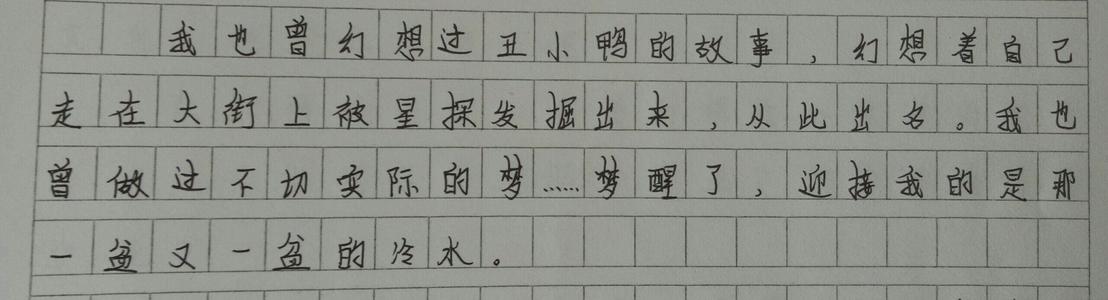 我也曾幻想过丑小鸭的故事，幻想着自己
走在大街上被星探发掘出来，从此出名。我也
曾做过不切实际的梦……梦醒了，迎接我的是那
一盆又一盆的冷水。